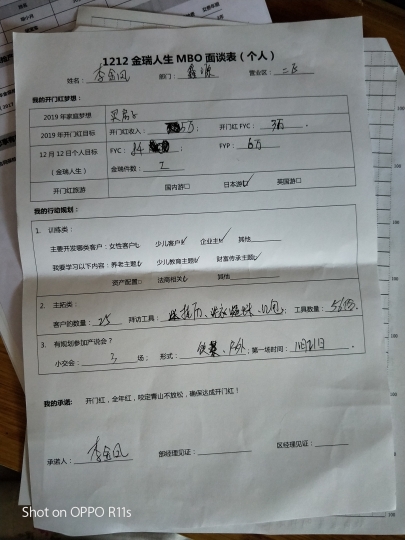 1212 金瑞人生 MBO 面谈表（个人）
姓名： 李金凤 部门： 营业区： 二区
我的开门红梦想：
2019 年家庭梦想 买房子
2019 年开门红目标 开门红收入： 5万； 开门红 FYC： 3万
12 月 12 日个人目标 FYC： FYP： 6万
（金瑞人生） 金瑞件数： 2
开门红旅游 国内游□ 日本游☑ 英国游□
我的行动规划：
1. 训练类：
主要开发哪类客户：女性客户☑ 少儿客户☑ 企业主☑ 其他
我要学习以下内容：养老主题☑ 少儿教育主题☑ 财富传承主题☑
资产配置□ 法商相关☑ 其他
2. 主拓类：
客户的数量： 25 拜访工具： 台历、 工具数量：
3. 有规划参加产说会？
小交会： 3 场； 形式： 第一场时间：
我的承诺： 开门红，全年红，咬定青山不放松，确保达成开门红！
承诺人： 李金凤 部经理见证： 区经理见证：
Shot on OPPO R11s